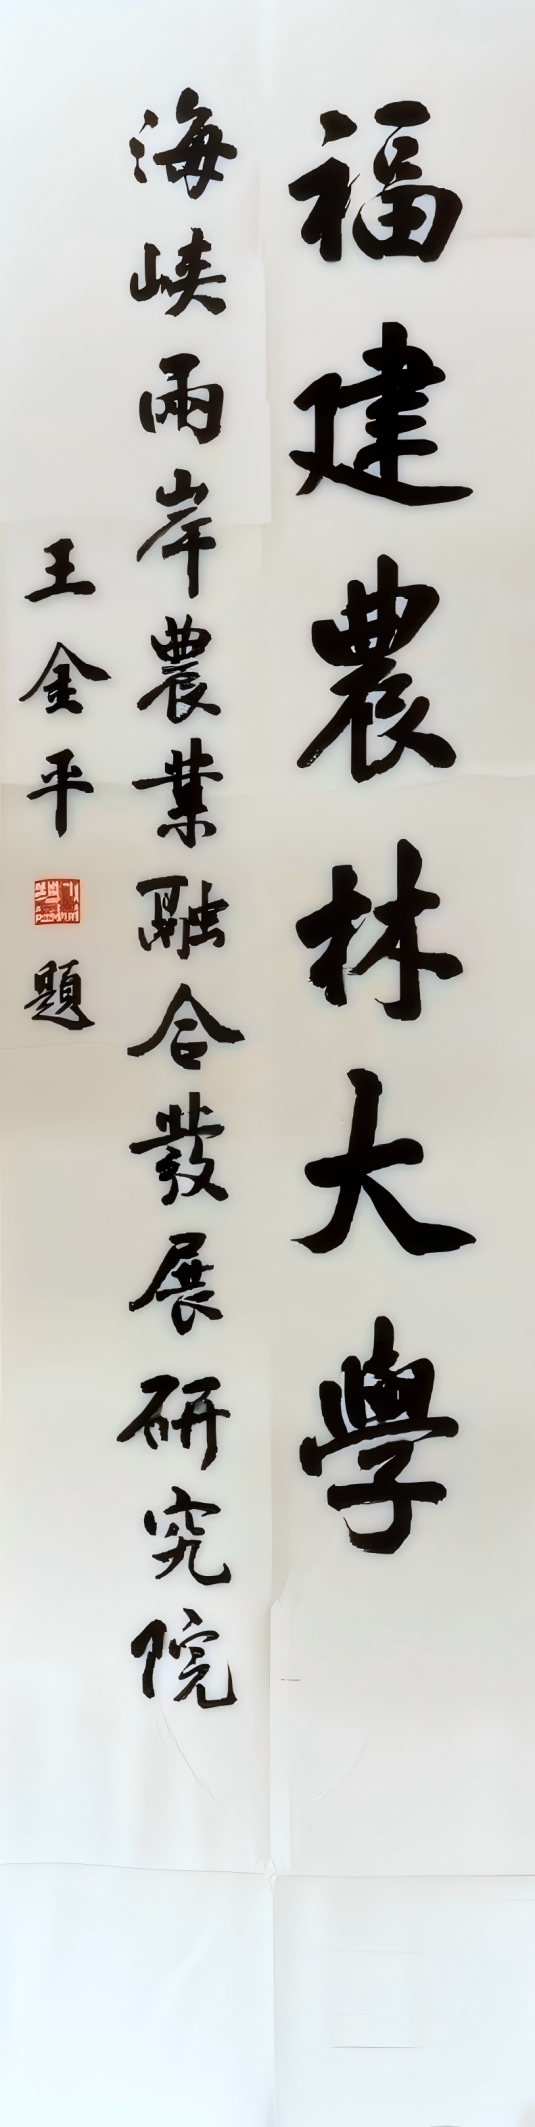 福建農林大學
海峽兩岸農業融合發展研究院
王金平題